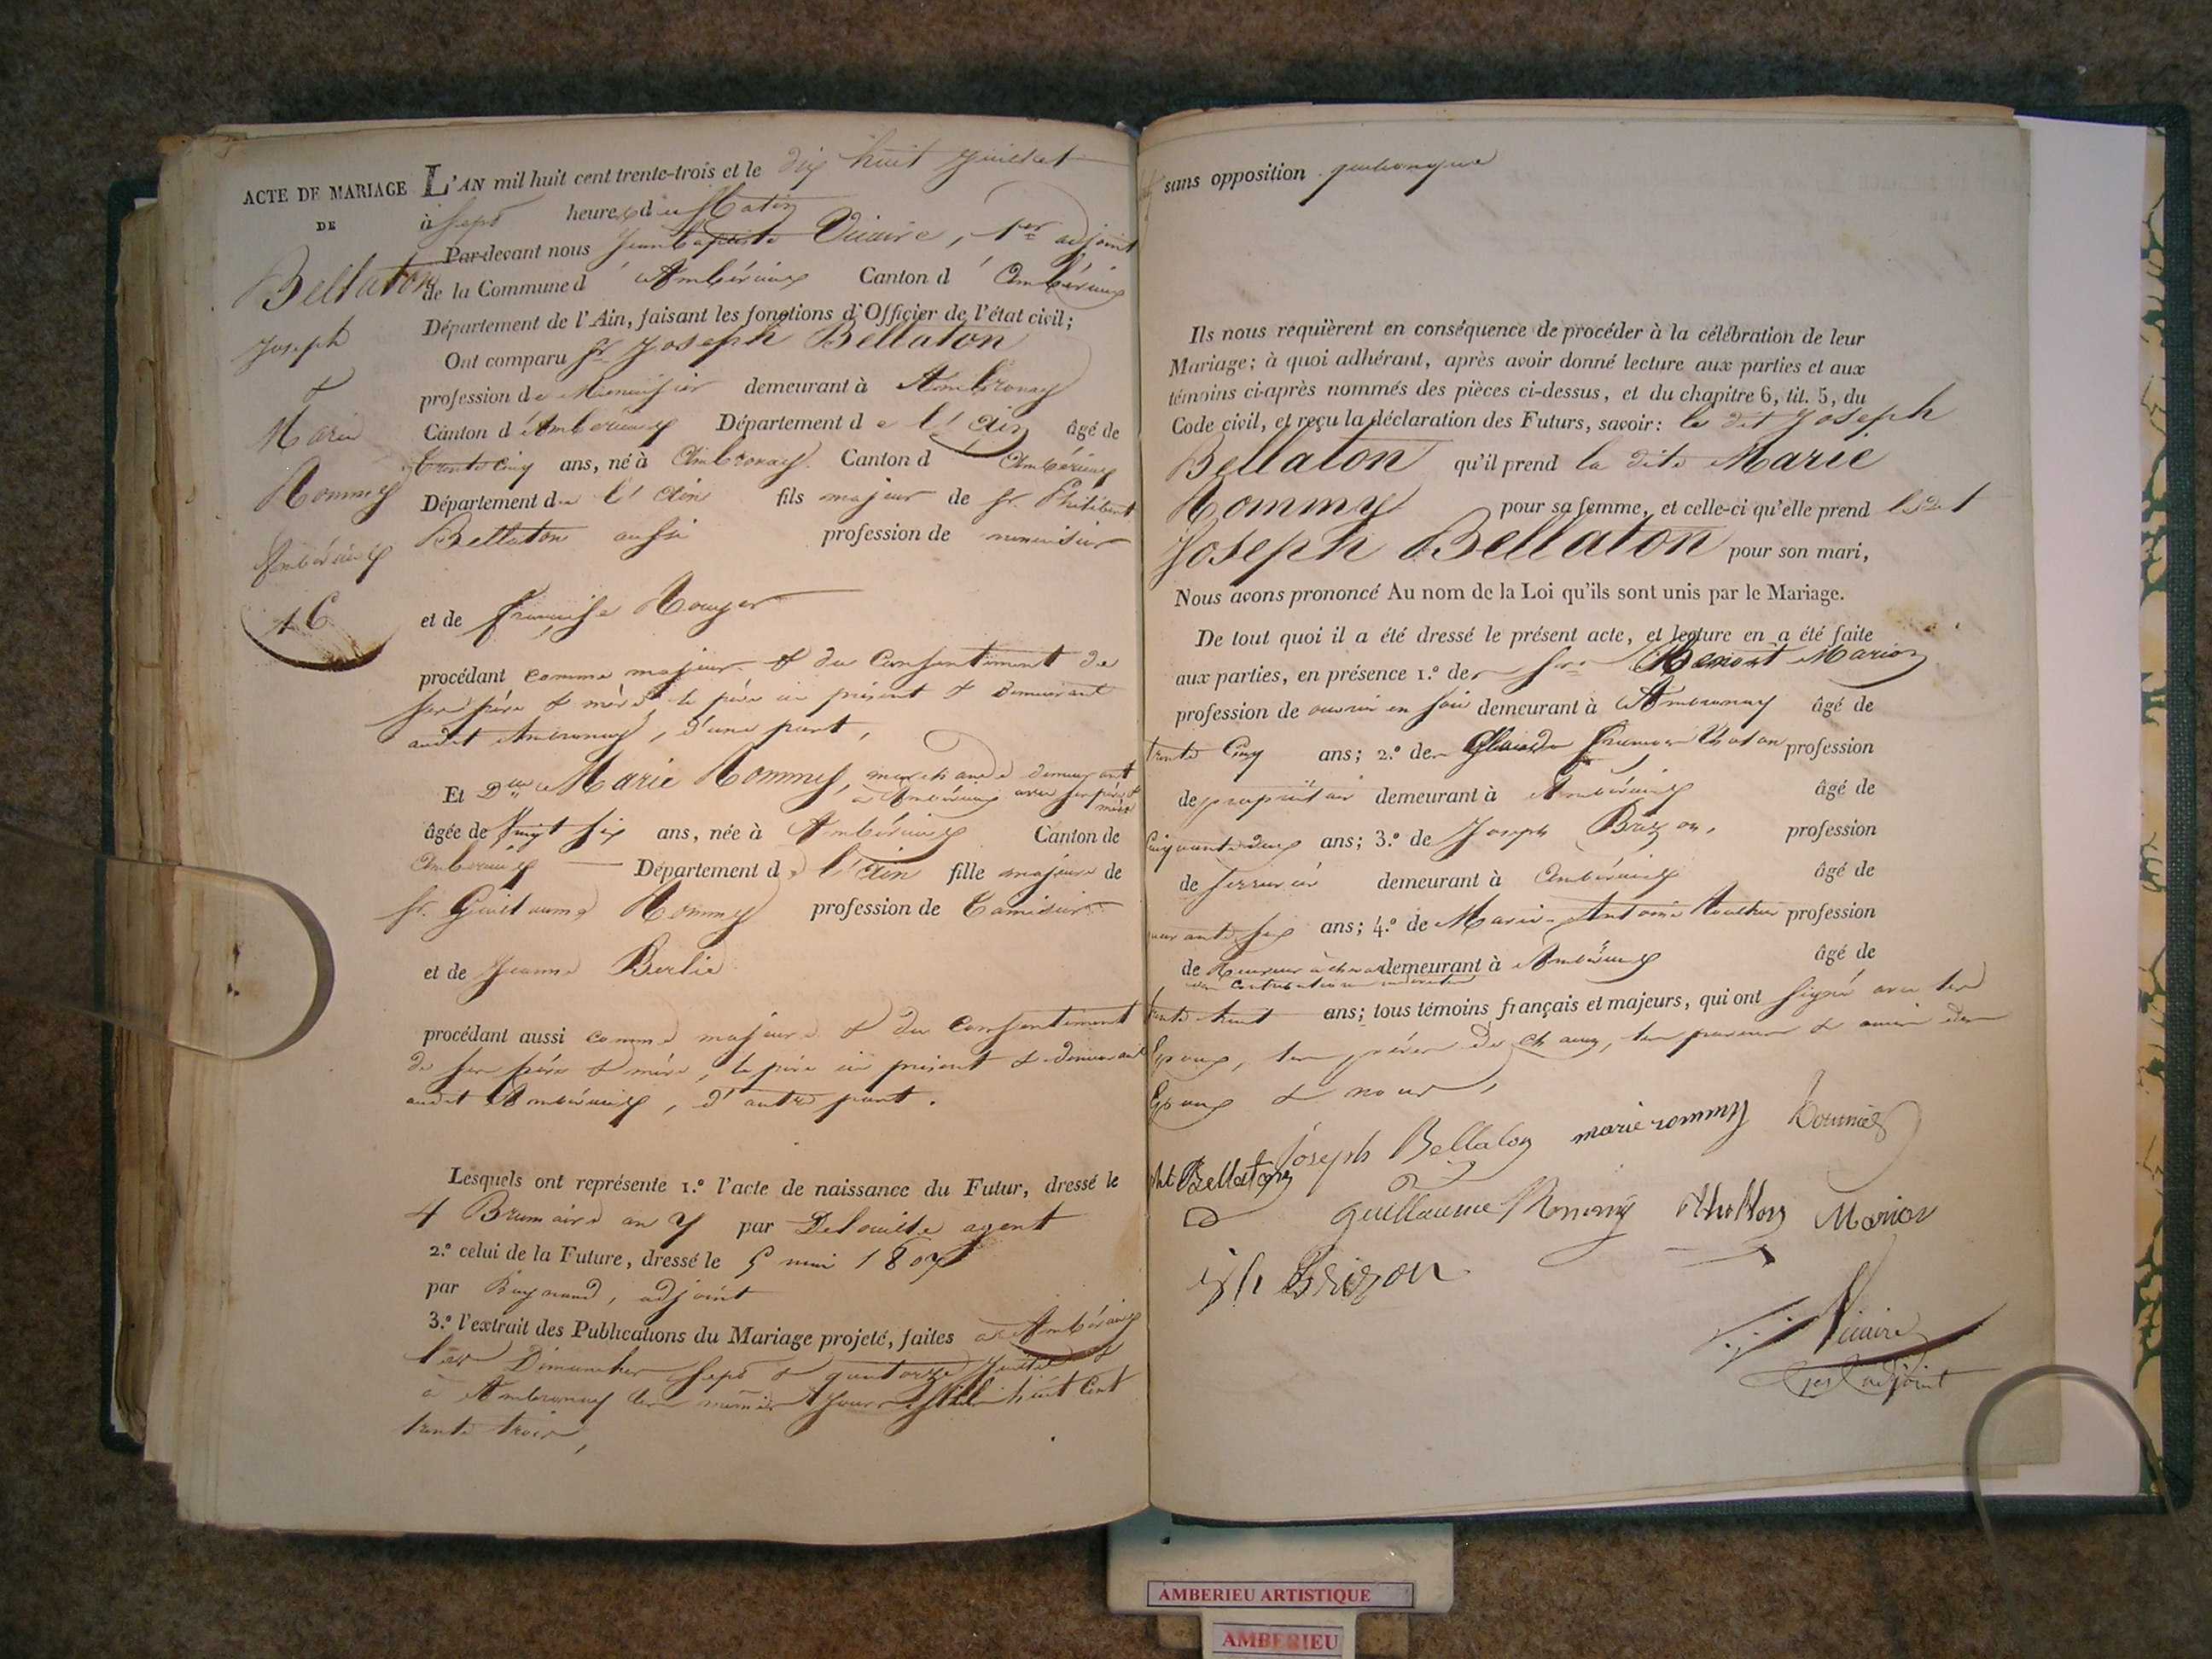 ACTE DE MARIAGE
DE
Bellaton
Joseph
&
Marie
Rommy
Ambérieux
L'AN mil huit cent trente-trois et le dix huit Juillet
à sept heures du Matin
Par-devant nous Jean Baptiste Vicaire, 1er adjoint
de la Commune d'Ambérieux Canton d'Ambérieux
Département de l'Ain, faisant les fonctions d'Officier de l'état civil;
Ont comparu Sr. Joseph Bellaton
profession de Menuisier demeurant à Ambronay
Canton d'Ambérieux Département de l'Ain âgé de
trente cinq ans, né à Ambronay Canton d'Ambérieux
Département de l'Ain fils majeur de Sr. Philibert
Bellaton aussi profession de menuisier
et de Françoise Rouyer
procédant comme majeur & du Consentement de
ses père & mère, le père ici présent & demeurant
audit Ambronay, d'une part,
Et Dlle Marie Rommy, marchande demeurant
à Ambérieux avec ses père &
mère
âgée de Vingt six ans, née à Ambérieux Canton de
Ambérieux Département de l'Ain fille majeure de
Sr. Guillaume Rommy profession de Tamisier
et de Jeanne Berlie
procédant aussi comme majeure & du Consentement
de ses père & mère, le père ici présent & demeurant
audit Ambérieux, d'autre part.
Lesquels ont représenté 1.º l'acte de naissance du Futur, dressé le
4 Brumaire an 7 par Delouille agent
2.º celui de la Future, dressé le 5 mai 1807
par Raynaud, adjoint
3.º l'extrait des Publications du Mariage projeté, faites à Ambérieux
les Dimanches sept & quatorze Juillet &
à Ambronay les mêmes Jours Mil huit Cent
trente trois,
sans opposition quelconque
Ils nous requièrent en conséquence de procéder à la célébration de leur
Mariage; à quoi adhérant, après avoir donné lecture aux parties et aux
témoins ci-après nommés des pièces ci-dessus, et du chapitre 6, tit. 5, du
Code civil, et reçu la déclaration des Futurs, savoir: le dit Joseph
Bellaton qu'il prend la dite Marie
Rommy pour sa femme, et celle-ci qu'elle prend ledit
Joseph Bellaton pour son mari,
Nous avons prononcé Au nom de la Loi qu'ils sont unis par le Mariage.
De tout quoi il a été dressé le présent acte, et lecture en a été faite
aux parties, en présence 1.º de Benoit Marion
profession de ouvrier en soie demeurant à Ambronay âgé de
trente Cinq ans; 2.º de profession
de propriétaire demeurant à Ambérieux âgé de
Cinquante deux ans; 3.º de Joseph Brizon, profession
de serrurier demeurant à Ambérieux âgé de
quarante six ans; 4.º de Marie-Antoine profession
de Receveur à cheval demeurant à Ambérieux âgé de
des Contributions indirectes
trente huit ans; tous témoins français et majeurs, qui ont signé avec les
Epoux, les pères de chacun, les parens & amis des
Epoux & nous,
Joseph Bellaton marie rommy
Pht Bellaton
guillaume Rommy Marion
jh Brizon
Vicaire
1er adjoint
AMBERIEU ARTISTIQUE
AMBERIEU